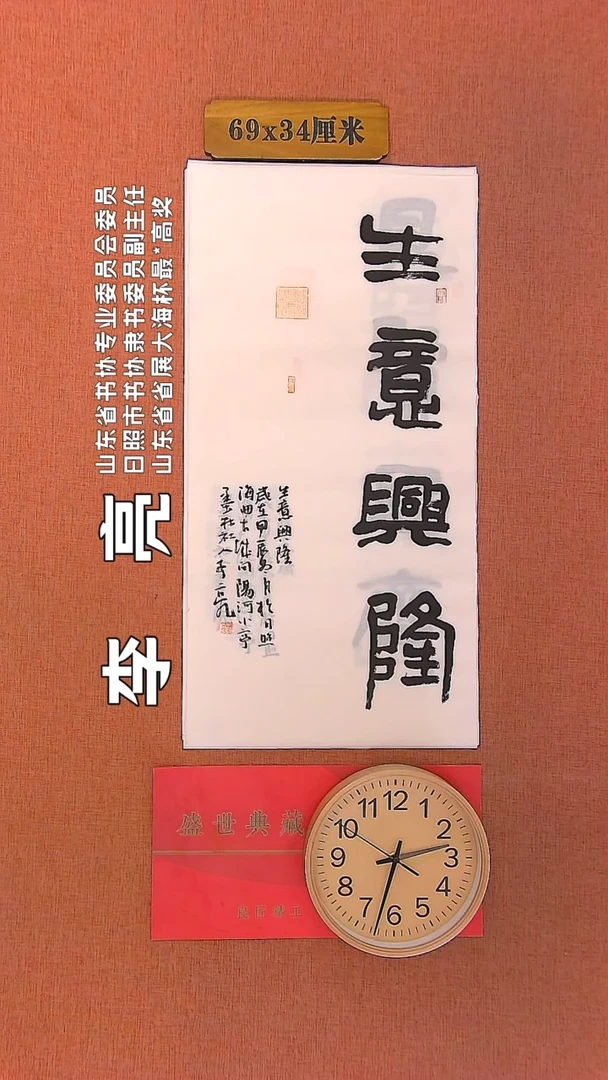 69x34厘米
生意興隆
生意興隆
歲在甲辰冬月於日照
海曲古城向陽河小亭
墨社社人李亮
山东省书协专业委员会委员
日照市书协隶书委员副主任
山东省省展大海杯最*高奖
李 亮
盛世典藏
良匠精工
12
1
2
3
4
5
6
7
8
9
10
11